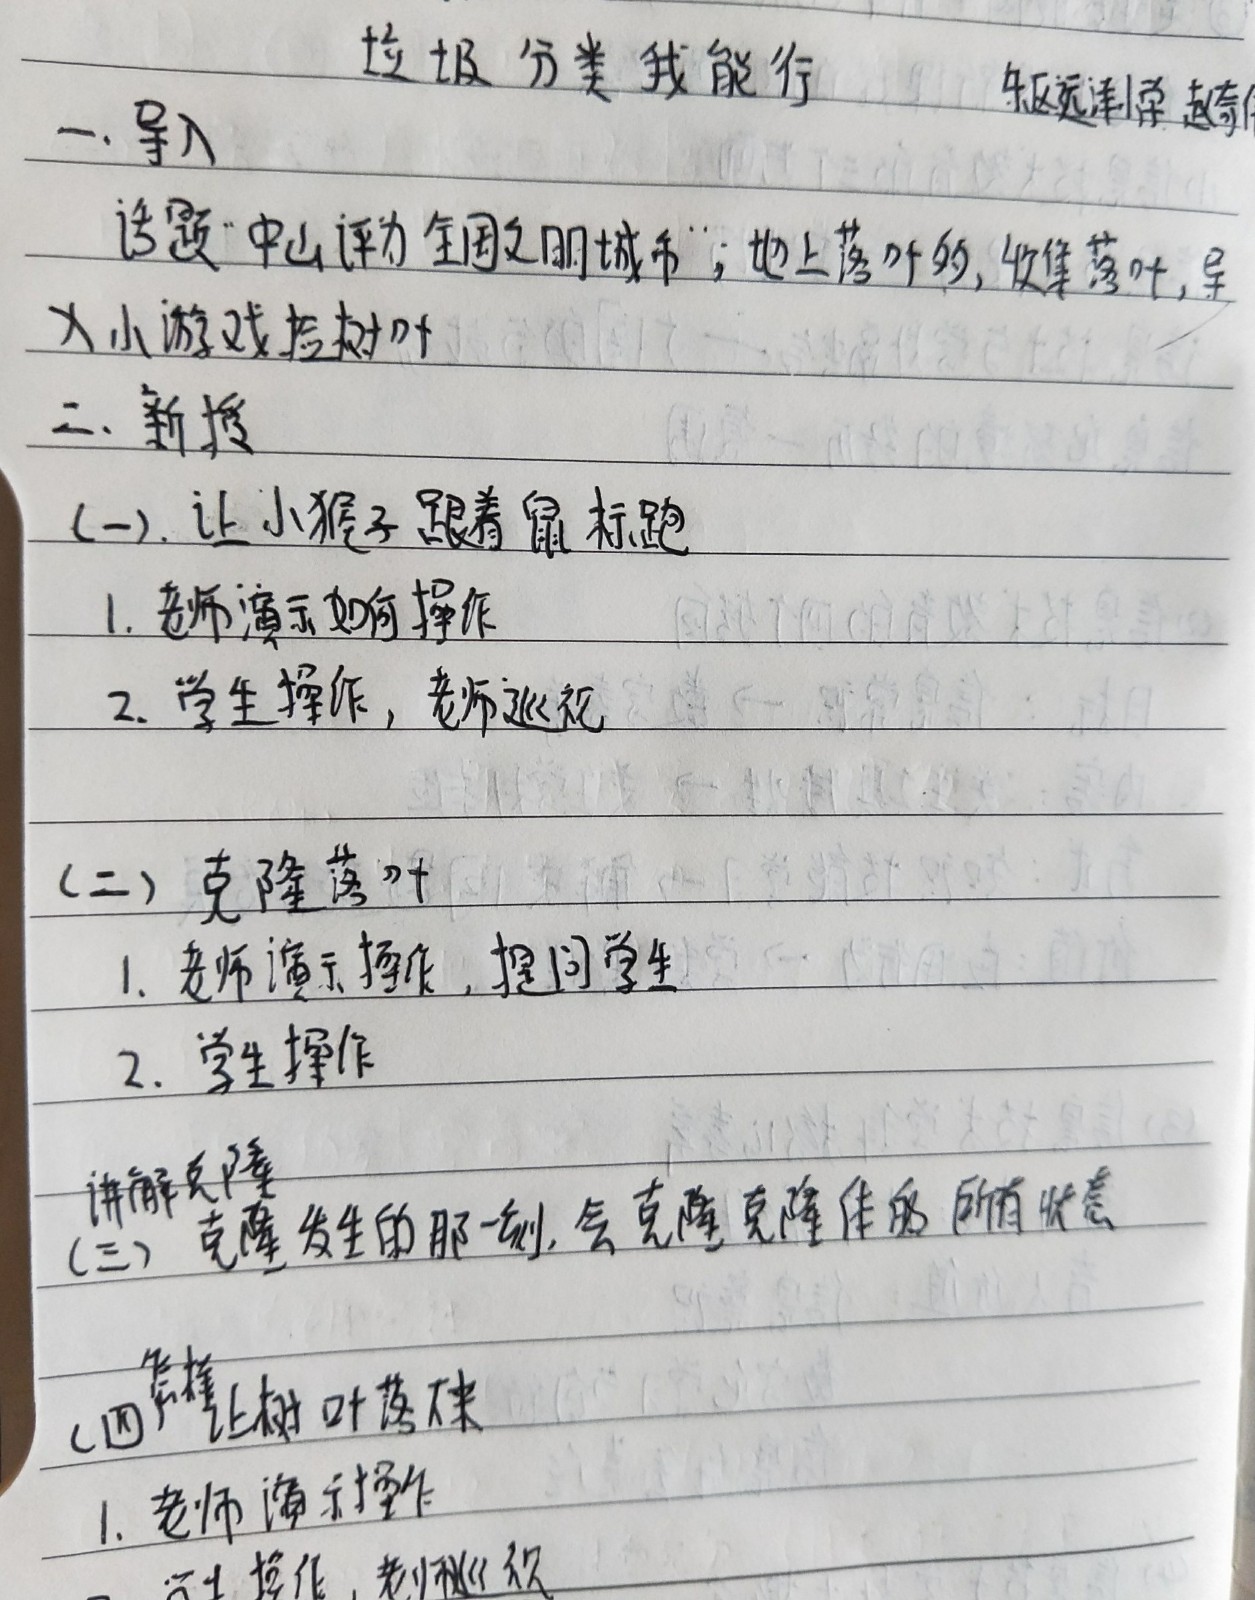 垃圾分类我能行
东区远洋小学 赵奇
一.导入
话题"中山评为全国文明城市";地上落叶多,收集落叶,导
入小游戏捡树叶
二.新授
(一).让小猴子跟着鼠标跑
1.老师演示如何操作
2.学生操作,老师巡视
(二)克隆落叶
1.老师演示操作,提问学生
2.学生操作
讲解克隆
(三)克隆发生的那一刻,会克隆克隆体的所有状态
怎样
(四 让树叶落下来
1.老师演示操作
学生操作,老师巡视